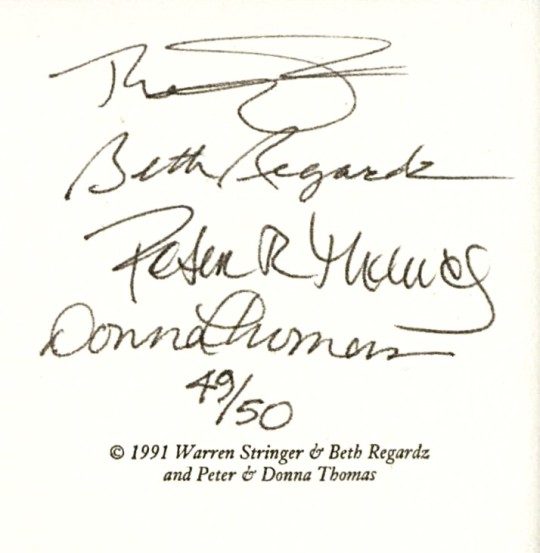 Beth Regardz
Peter R Thomas
Donna Thomas
49/50
© 1991 Warren Stringer & Beth Regardz
and Peter & Donna Thomas